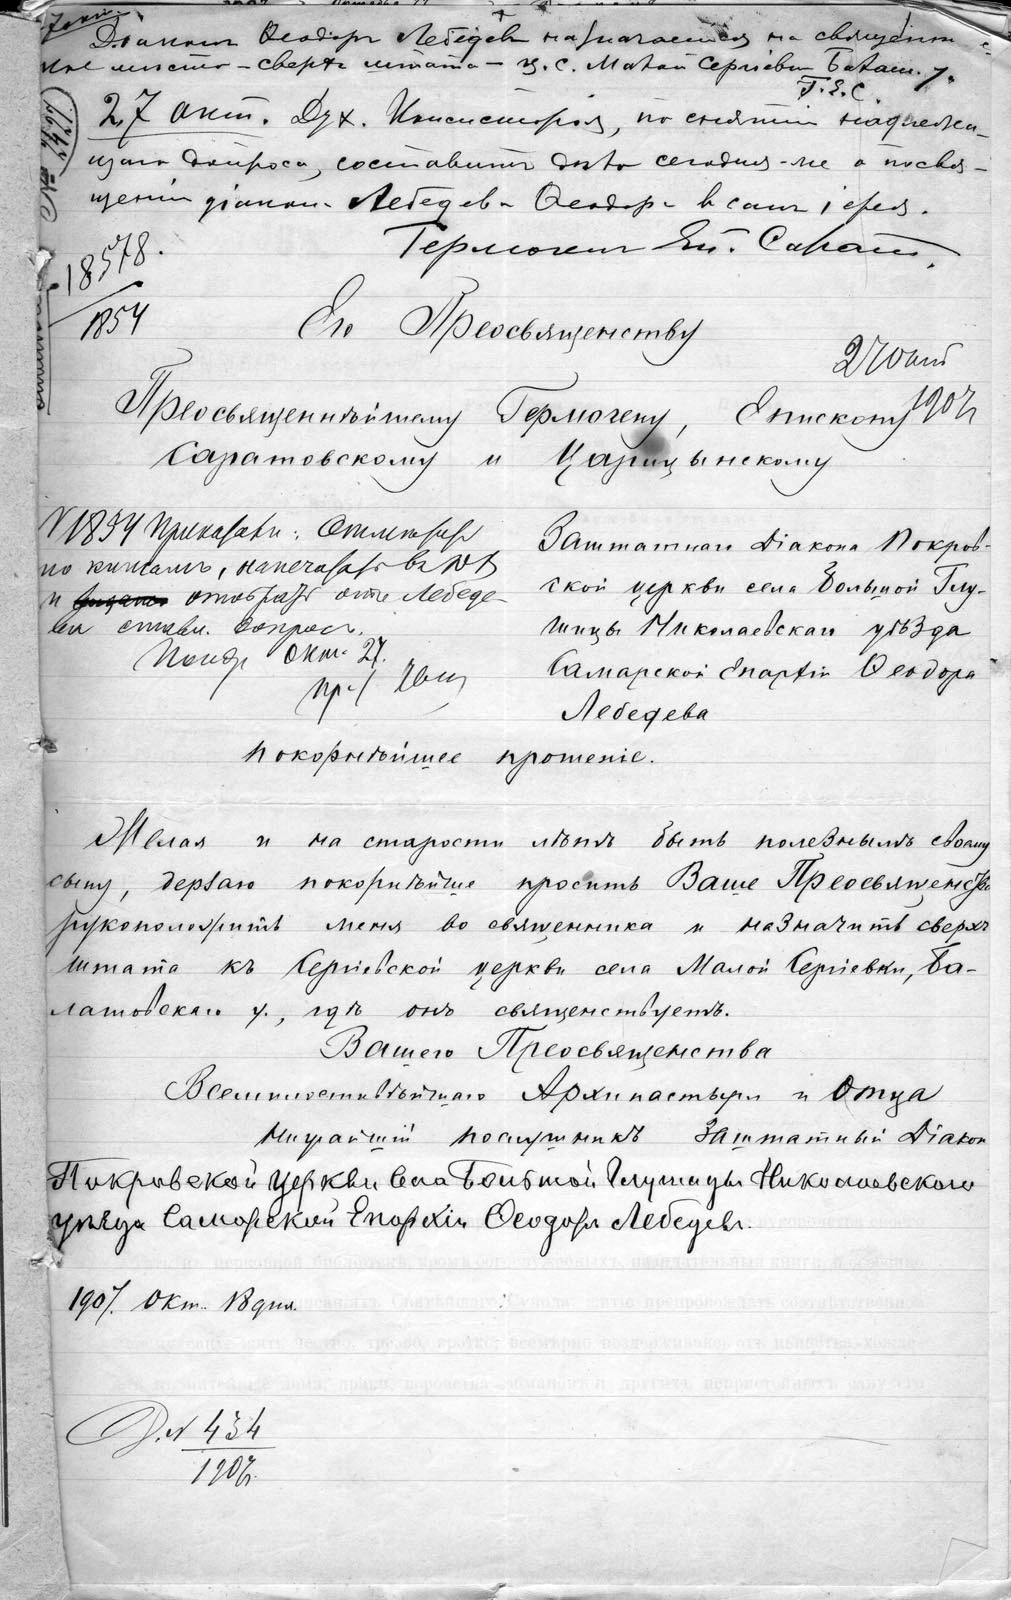 Діаконъ Ѳеодоръ Лебедевъ назначается на священни-
ное мѣсто – сверхъ штата – ц. с. Малой Сергіевки Балаш. у.
Г. Е. С.
27 окт. Дух. Консисторія, по снятіи надлежа-
щаго допроса, составитъ дѣло сегодня-же о посвя-
щеніи діакона Лебедева Ѳеодора въ санъ іерея.
Гермогенъ Еп. Сарат.
18578.
1854
Его Преосвященству
27 окт
1907 г
Преосвященнѣйшему Гермогену, Епископу
Саратовскому и Царицынскому
№ 1854 Приказали: Отмѣтить
по книгамъ, напечатать въ
и отобрать отъ Лебеде-
ва ставл. допросъ.
окт. 27.
Заштатнаго Діакона Покров-
ской церкви села Большой Глу-
шицы Николаевскаго уѣзда
Самарской Епархіи Ѳеодора
Лебедева
покорнѣйшее прошеніе.
Желая и на старости лѣтъ быть полезнымъ своему
сыну, дерзаю покорнѣйше просить Ваше Преосвященство
рукоположить меня во священника и назначить сверхъ
штата къ Сергіевской церкви села Малой Сергіевки, Ба-
лашовскаго у., гдѣ онъ священствуетъ.
Вашего Преосвященства
Всемилостивѣйшаго Архипастыря и Отца
нижайшій послушникъ Заштатный Діаконъ
Покровской церкви Села Большой Глушицы Николаевского
уѣзда Самарской Епархіи Ѳеодоръ Лебедевъ.
1907. Окт. 18 дня.
Д. № 434
1907 г.